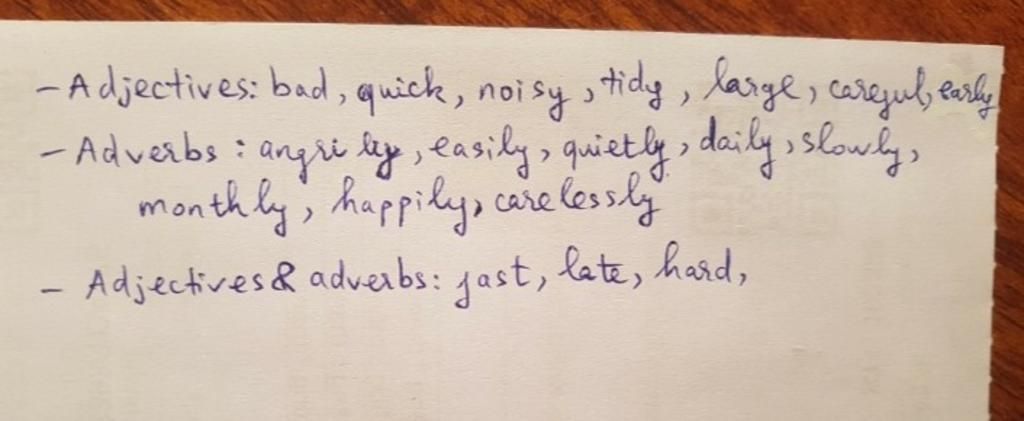 - Adjectives: bad, quick, noisy, tidy, large, careful, early
- Adverbs: angrily, easily, quietly, daily, slowly,
monthly, happily, carelessly
- Adjectives & adverbs: fast, late, hard,